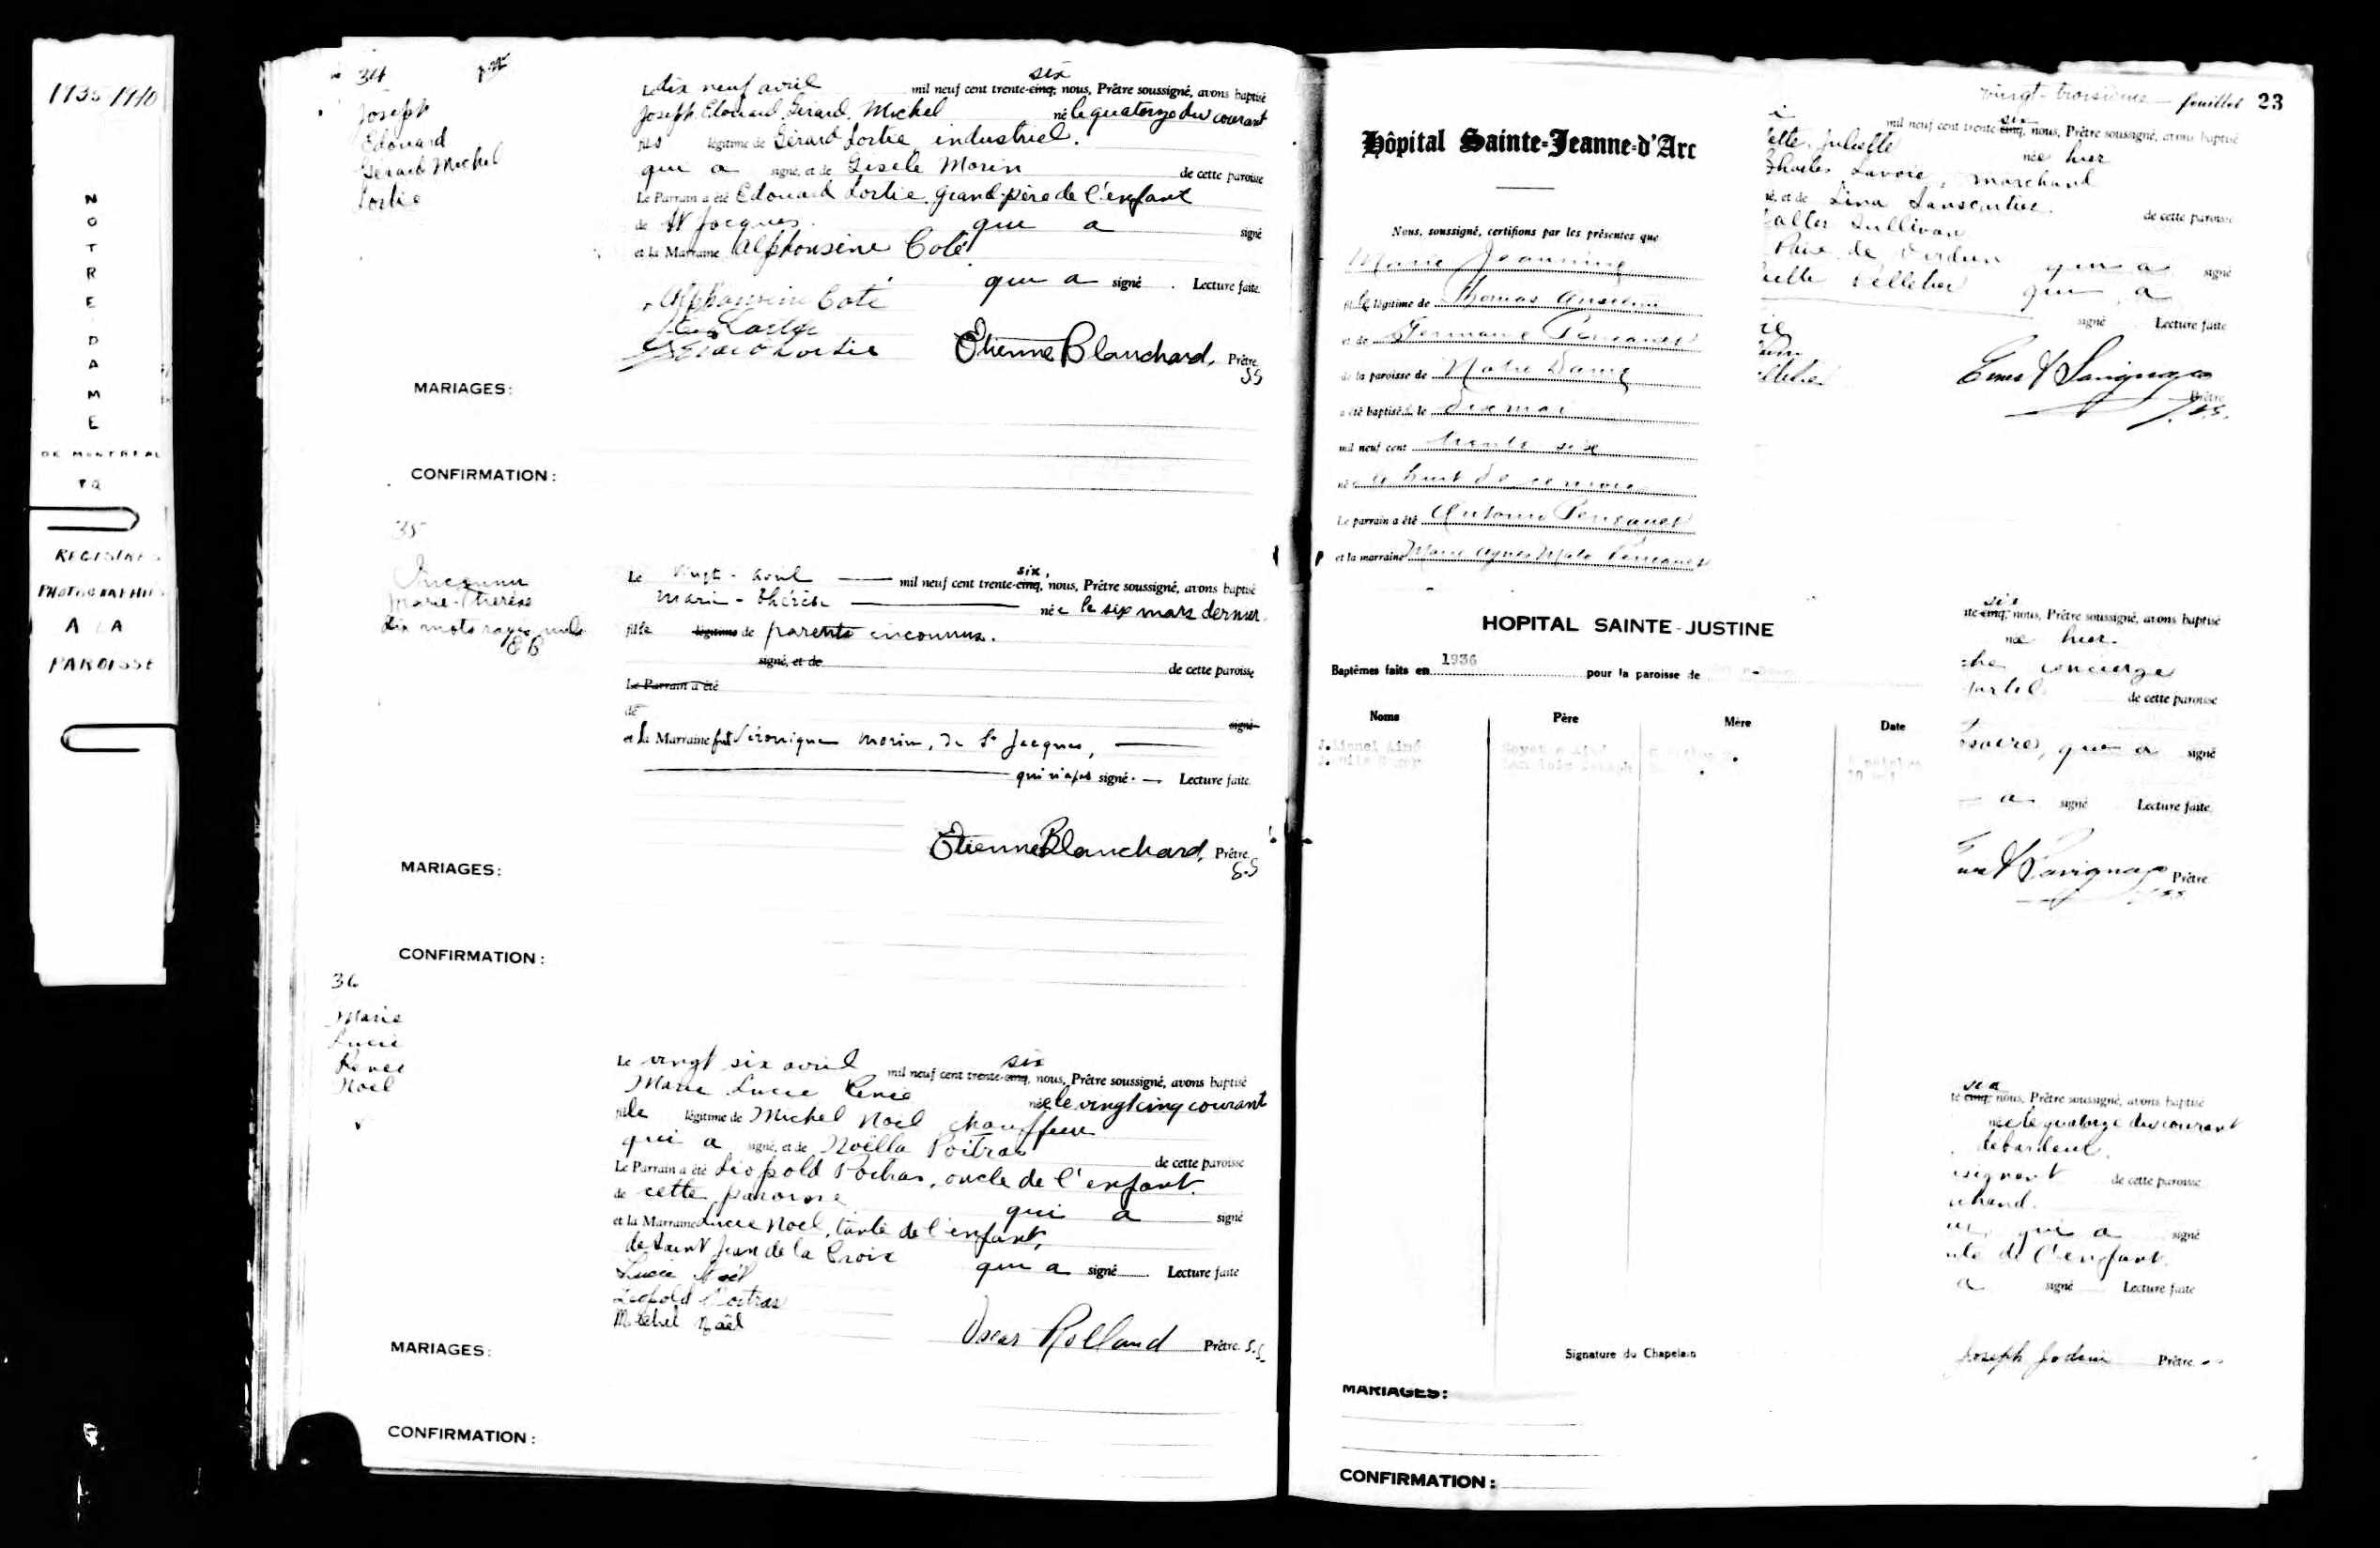 1935-1940
NOTRE DAME
DE MONTREAL
PQ
REGISTRES
PHOTOGRAPHIÉS
A LA
PAROISSE
34
Joseph
Edouard
Gérard Michel
Lortie
Le dix neuf avril mil neuf cent trente-cinq, six nous, Prêtre soussigné, avons baptisé
Joseph Edouard Gérard Michel né le quatorze du courant
fils légitime de Gérard Lortie industriel.
qui a signé, et de Gisèle Morin de cette paroisse
Le Parrain a été Edouard Lortie, grand-père de l'enfant
de St Jacques. qui a signé
et la Marraine Alphonsine Coté
qui a signé. Lecture faite.
Alphonsine Coté
Lortie
Gérard Lortie Etienne Blanchard, Prêtre
SS
MARIAGES:
CONFIRMATION:
35
Inconnu
Marie-Thérèse
dix mots rayés nuls
EB
Le vingt-avril mil neuf cent trente-cinq, six, nous, Prêtre soussigné, avons baptisé
Marie-Thérèse née le six mars dernier
fille légitime de parents inconnus.
signé, et de de cette paroisse
Le Parrain a été
de signé
et la Marraine fut Véronique Morin, de St Jacques,
qui n'a pas signé. Lecture faite.
Etienne Blanchard, Prêtre
S.S
MARIAGES:
CONFIRMATION:
36
Marie
Lucie
Renée
Noel
Le vingt six avril mil neuf cent trente-cinq, six nous, Prêtre soussigné, avons baptisé
Marie Lucie Renée née le vingt cinq courant
fille légitime de Michel Noel chauffeur
qui a signé, et de Noëlla Poitras de cette paroisse
Le Parrain a été Léopold Poitras, oncle de l'enfant.
de cette paroisse qui a signé
et la Marraine Lucie Noel, tante de l'enfant,
de Saint Jean de la Croix
qui a signé Lecture faite
Lucie Noël
Léopold Poitras
Michel Noël
Oscar Rolland Prêtre S.S.
MARIAGES:
CONFIRMATION:
vingt-troisième feuillet 23
Hôpital Sainte-Jeanne-d'Arc
Nous, soussigné, certifions par les présentes que
Marie Jeannine
fille légitime de Thomas
et de Germaine
de la paroisse de Notre Dame
a été baptisée le dix mai
mil neuf cent trente six
née le huit de ce mois
Le parrain a été Antonio
et la marraine Marie Agnes
mil neuf cent trente-cinq, six nous, Prêtre soussigné, avons baptisé
ette, Juliette née hier
Charles Lavoie, marchand
né, et de Lina de cette paroisse
alter Sullivan
Paix de Verdun qui a signé
elle Pelletier qui a
signé Lecture faite
Savignac
Prêtre
p.s.s.
HOPITAL SAINTE-JUSTINE
Baptêmes faits en 1936 pour la paroisse de
Noms Père Mère Date
J. Lionel Aimé
Signature du Chapelain
te-cinq, six nous, Prêtre soussigné, avons baptisé
née hier.
che concierge
de cette paroisse
qui a signé
a signé Lecture faite.
Savignac Prêtre
te-cinq, six nous, Prêtre soussigné, avons baptisé
née le quatorze du courant
débardeur
de cette paroisse
chand.
qui a signé
nte de l'enfant.
a signé Lecture faite
Joseph Jodoin Prêtre
MARIAGES:
CONFIRMATION: